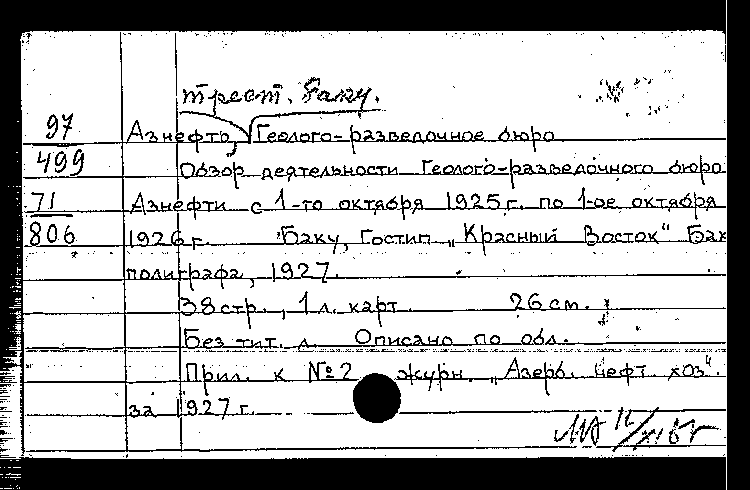 трест. Баку.
97 Азнефть, Геолого-разведочное бюро
499 Обзор деятельности Геолого-разведочного бюро
71 Азнефти с 1-го октября 1925 г. по 1-ое октября
806 1926 г. Баку, Гостип. „Красный Восток" Бак
полиграфа, 1927.
38 стр., 1 л. карт 26 cm.
Без тит. л. Описано по обл.
Прил. к № 2 журн. „Азерб. нефт. хоз".
за 1927 г.